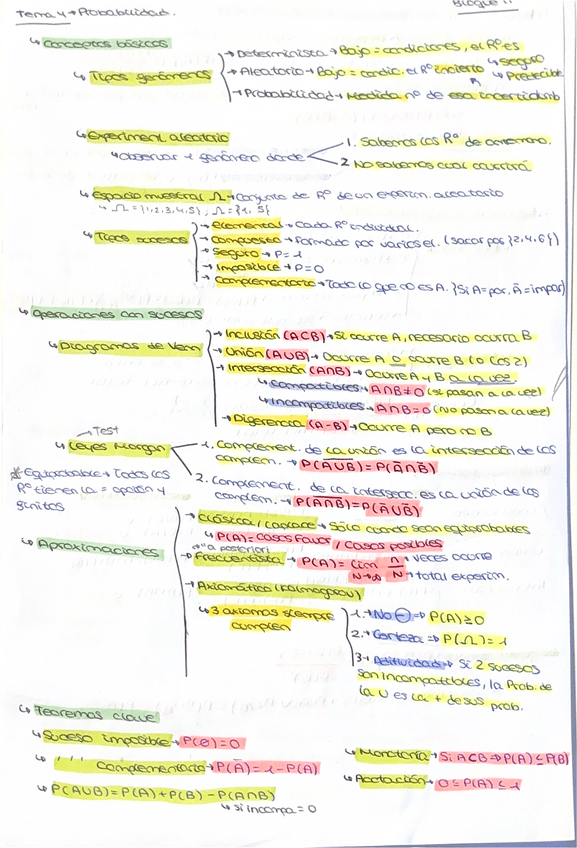 Tema 4 → Probabilidad.
Bloque II
↳ Conceptos básicos
↳ Tipos fenómenos
→ Determinista → Bajo = condiciones, el Rº es seguro
→ Aleatorio → Bajo = condic. el Rº incierto
↳ Predecible
→ Probabilidad → Medida nº de esa incertidumb
↳ Experiment. aleatorio
↳ Observar 1 fenómeno donde
1. Sabemos los Rº de antemano.
2 No sabemos cual ocurrirá
↳ Espacio muestral Ω → Conjunto de Rº de un experim. aleatorio
↳ Ω = {1,2,3,4,5}, Ω = {1, 5}
↳ Tipos sucesos
→ elemental → Cada Rº individual.
→ compuesto → Formado por varios el. (sacar par {2,4,6})
→ Seguro → P=1
→ Imposible → P=0
→ Complementario → Todo lo que no es A. {Si A = par, Ā = impar}
↳ Operaciones con sucesos
↳ Diagramas de Venn
→ Inclusión (A⊂B) → Si ocurre A, necesario ocurra B
→ Unión (A∪B) → Ocurre A o ocurre B (o los 2)
→ Intersección (A∩B) → Ocurre A y B a la vez.
↳ compatibles → A∩B ≠ 0 (si pasan a la vez)
↳ incompatibles → A∩B = 0 (No pasan a la vez)
→ Diferencia (A-B) → Ocurre A pero no B
→ Test
↳ Leyes Morgan
1. Complement. de la unión es la intersección de los
complem. → P(A̅∪̅B̅) = P(Ā∩B̄)
2. Complement. de la intersecc. es la unión de los
complem. → P(A̅∩̅B̅) = P(Ā∪B̄)
* Equiprobable → Todos los
Rº tienen la = opción y
finitos
↳ Aproximaciones
→ Clásica / Laplace → Sólo cuando sean equiprobables
↳ P(A) = Casos Favor / Casos posibles
→ "a posteriori"
→ Frecuentista → P(A) = lim N→∞ n/N → veces ocurre
→ total experim.
→ Axiomática (Kolmogorov)
↳ 3 axiomas siempre
cumplen
1. → No ⊖ ⇒ P(A) ≥ 0
2. → Certeza ⇒ P(Ω) = 1
3 → Aditividad → Si 2 sucesos
son incompatibles, la Prob. de
la U es la + de sus prob.
↳ Teoremas clave
↳ Suceso imposible → P(∅) = 0
↳ '' Complementario → P(Ā) = 1 - P(A)
↳ P(A∪B) = P(A) + P(B) - P(A∩B)
↳ si incompa = 0
↳ Monotonía → Si A⊂B ⇒ P(A) ≤ P(B)
↳ Acotación → 0 ≤ P(A) ≤ 1